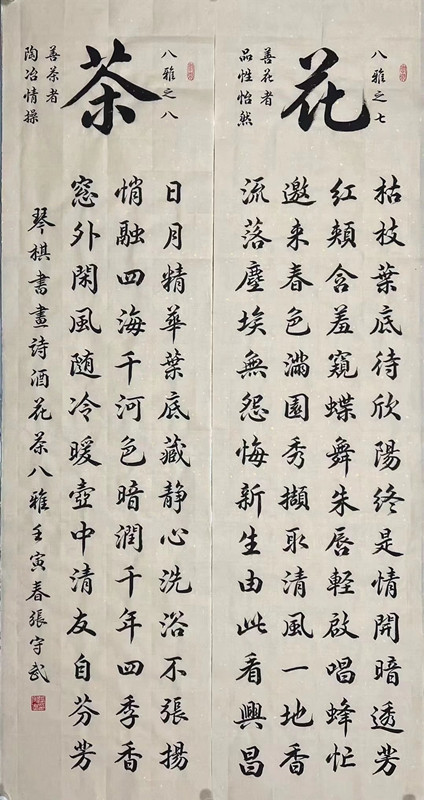 八雅之七
花
善花者
品性怡然
枯枝葉底待欣陽終是情開暗透芳
红頰含羞窺蝶舞朱唇輕啟唱蜂忙
邀来春色滿園秀擷取清風一地香
流落塵埃無怨悔新生由此看興昌
八雅之八
茶
善茶者
陶冶情操
日月精華葉底藏静心洗浴不張揚
悄融四海千河色暗潤千年四季香
窓外閑風随冷暖壺中清友自芬芳
琴棋書畫詩酒花茶八雅壬寅春張守武